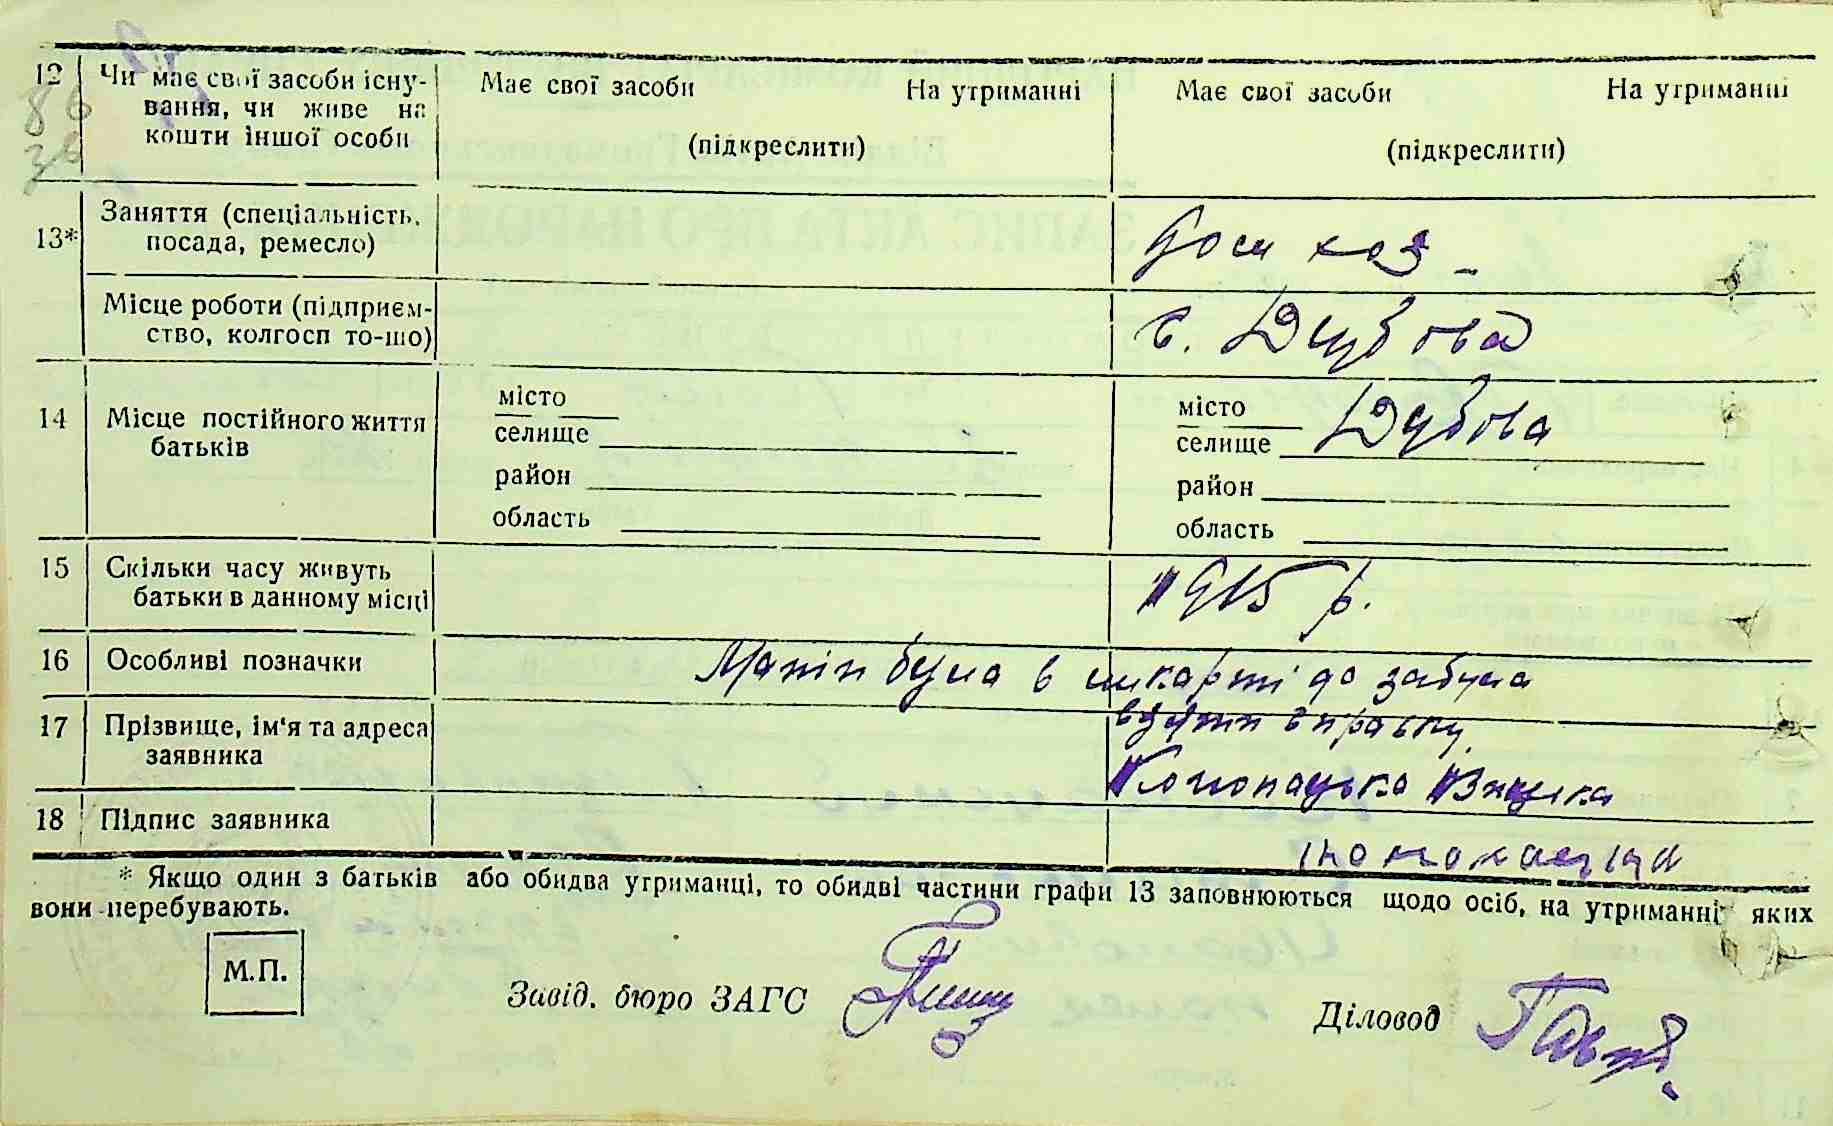 12 Чи має свої засоби існу- Має свої засоби На утриманні Має свої засоби На утриманні
86 вання, чи живе на
36 кошти іншої особи (підкреслити) (підкреслити)
13* Заняття (спеціальність, посада, ремесло) Дом хоз -
Місце роботи (підприєм-
ство, колгосп то-що) с. Дубова
14 Місце постійного життя батьків
місто місто
селище селище Дубова
район район
область область
15 Скільки часу живуть
батьки в данному місці 1915 р.
16 Особливі позначки Матір була в до забула
взяти справку.
17 Прізвище, ім'я та адреса
заявника
18 Підпис заявника
* Якщо один з батьків або обидва утриманці, то обидві частини графи 13 заповнюються щодо осіб, на утриманні яких
вони перебувають.
М.П.
Завід. бюро ЗАГС
Діловод